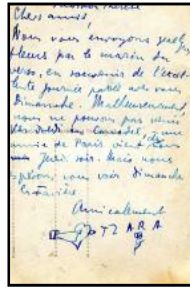 Chers amis,
Nous vous envoyons quelques
fleurs par le marin du
verso, en souvenir de l'excel-
lente journée passée avec vous
dimanche. Malheureusement,
nous ne pouvons pas venir
vendredi, une
amie de Paris vient
jeudi soir. Mais nous
espérons vous voir dimanche
Amicalement